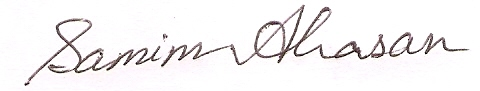 Samim Ahasan